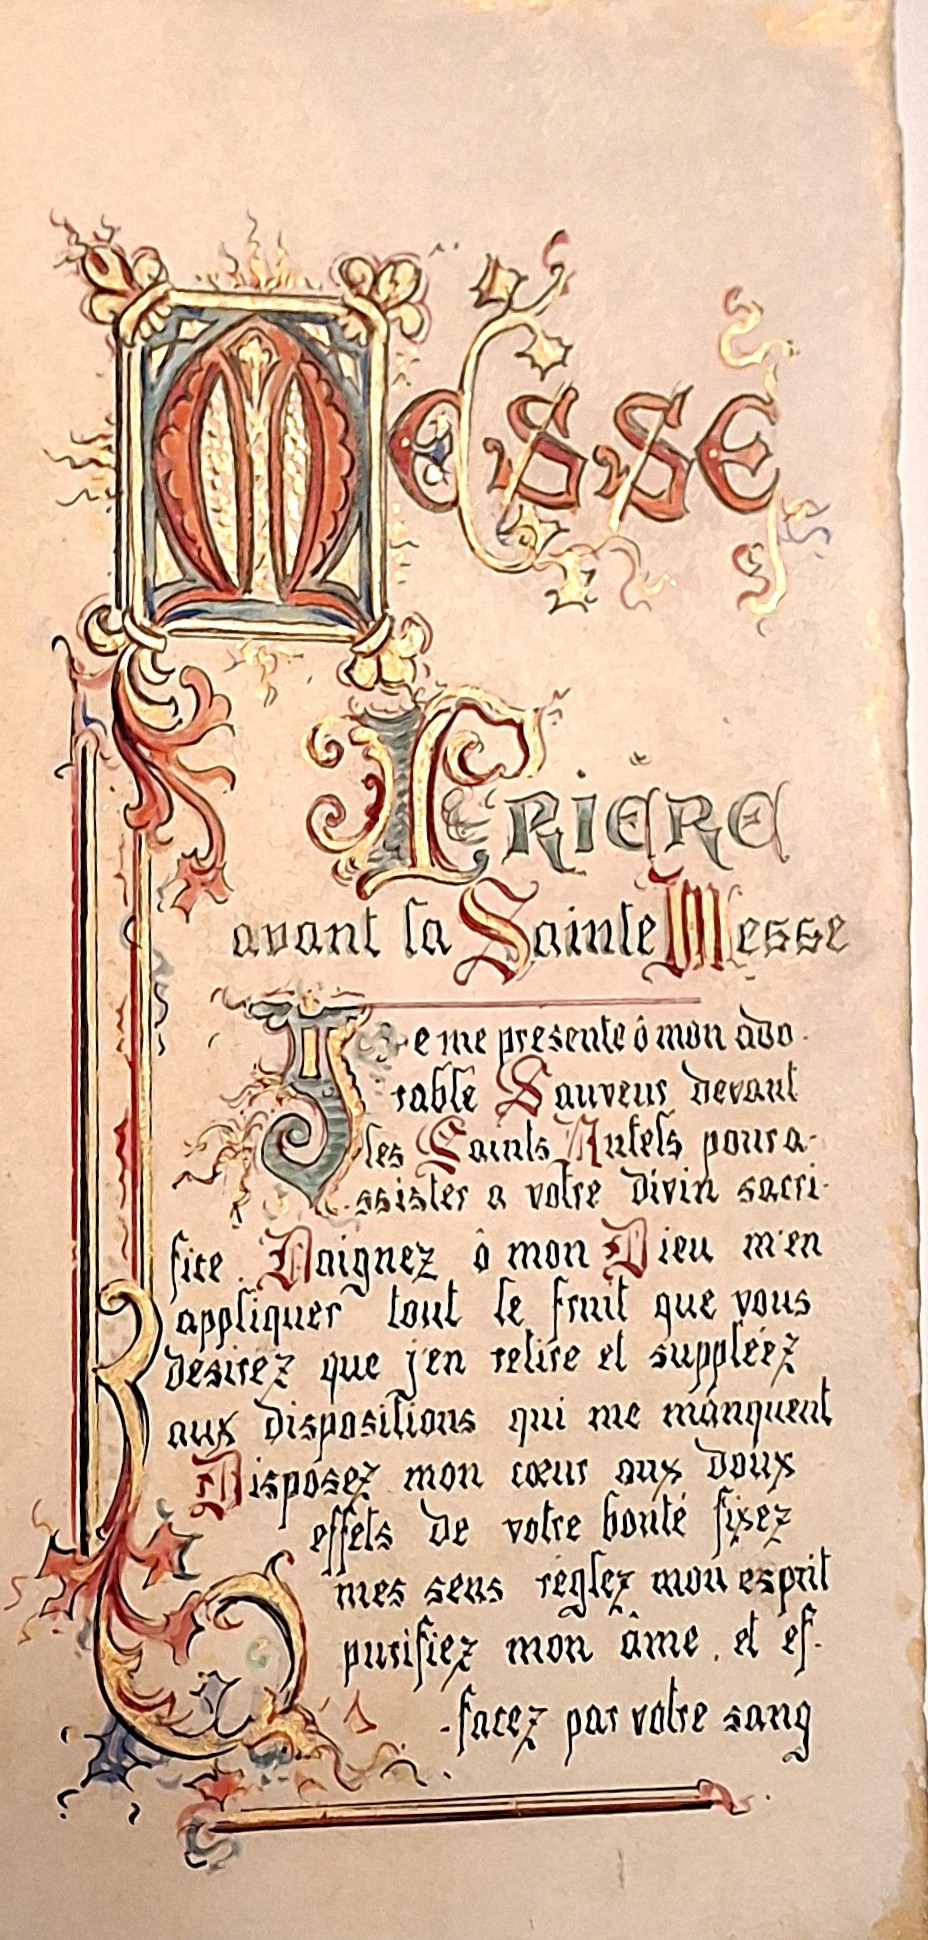 Messe
Prière
avant la Sainte Messe
Je me présente ô mon ado-
rable Sauveur devant
les Saints Autels pour a-
-ssister a votre divin sacri-
fice. Daignez ô mon Dieu m'en
appliquer tout le fruit que vous
desirez que j'en retire et suppléez
aux dispositions qui me manquent
Disposez mon cœur aux doux
effets de votre bonté fixez
mes sens réglez mon esprit
purifiez mon âme. et ef-
-facez par votre sang